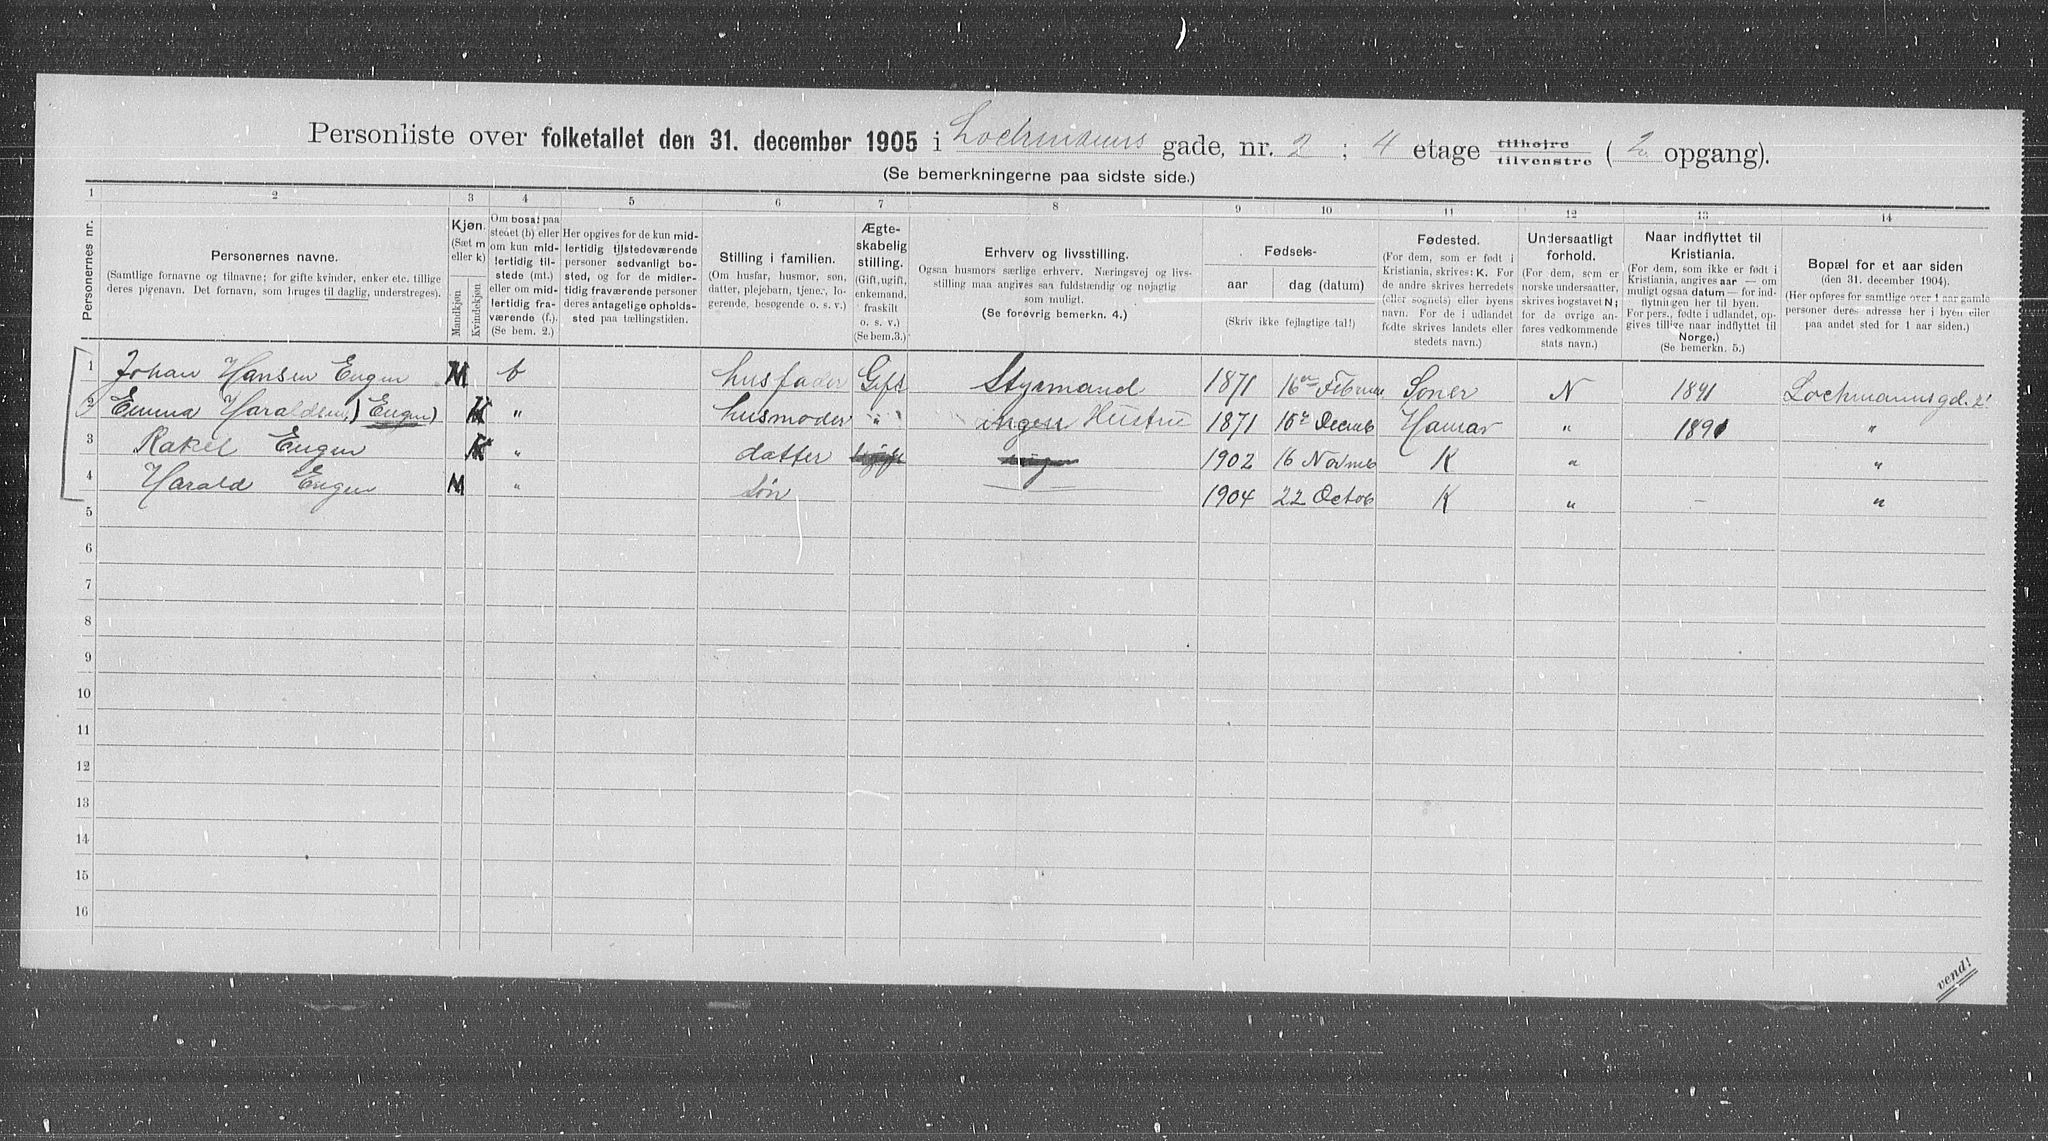 Personliste over folketallet den 31. december 1905 i Lochmanns gade, nr. 2 ; 4 etage tilhøjre tilvenstre ( 2 opgang).
(Se bemerkningerne paa sidste side.)
1 2 3 4 5 6 7 8 9 10 11 12 13 14
Personernes nr.
Personernes navne.
(Samtlige fornavne og tilnavne; for gifte kvinder, enker etc. tillige
deres pigenavn. Det fornavn, som bruges til daglig, understreges).
Kjøn.
(Sæt m
eller k)
Mandkjøn
Kvindekjøn
Om bosat paa
stedet (b) eller
om kun mid-
lertidig til-
stede (mt.)
eller om mid-
lertidig fra-
værende (f.).
(Se bem. 2.)
Her opgives for de kun mid-
lertidig tilstedeværende
personer sedvanligt bo-
sted, og for de midler-
tidig fraværende personer
deres antagelige opholds-
sted paa tællingstiden.
Stilling i familien.
(Om husfar, husmor, søn,
datter, plejebarn, tjene., lo-
gerende, besøgende o. s. v.)
Ægte-
skabelig
stilling.
(Gift, ugift,
enkemand,
fraskilt
o. s. v.)
(Se bem.3.)
Erhverv og livsstilling.
Ogsaa husmors særlige erhverv. Næringsvej og livs-
stilling maa angives saa fuldstændig og nøjagtig
som muligt.
(Se forøvrig bemerkn. 4.)
Fødsels-
aar
dag (datum)
(Skriv ikke fejlagtige tal!)
Fødested.
(For dem, som er født i
Kristiania, skrives: K. For
de andre skrives herredets
(eller sognets) eller byens
navn. For de i udlandet
fødte skrives landets eller
stedets navn.)
Undersaatligt
forhold.
(For dem, som er
norske undersaatter,
skrives bogstavet N;
for de øvrige an-
føres vedkommende
stats navn.)
Naar indflyttet til
Kristiania.
(For dem, som ikke er født i
Kristiania, angives aar — om
muligt ogsaa datum — for ind-
flytningen her til byen.
For pers., fødte i udlandet, op-
gives tillige naar indflyttet til
Norge.)
(Se bemerkn. 5.)
Bopæl for et aar siden
(den 31. december 1904).
(Her opføres for samtlige over 1 aar gamle
personer deres adresse her i byen eller
paa andet sted for 1 aar siden.)
1 Johan Hansen Engen M b husfader Gift Styrmand 1871 16 Februar Soner N 1891 Lochmannsgd. 2
2 Emma Haraldsen, (Engen) K " husmoder " ingen Hustru 1871 15 Decmb Hamar " 1891 "
3 Rakel Engen K " datter ugift 1902 16 Novmb K " "
4 Harald Engen M " Søn 1904 22 Octob K " - "
5
6
7
8
9
10
11
12
13
14
15
16
vend!